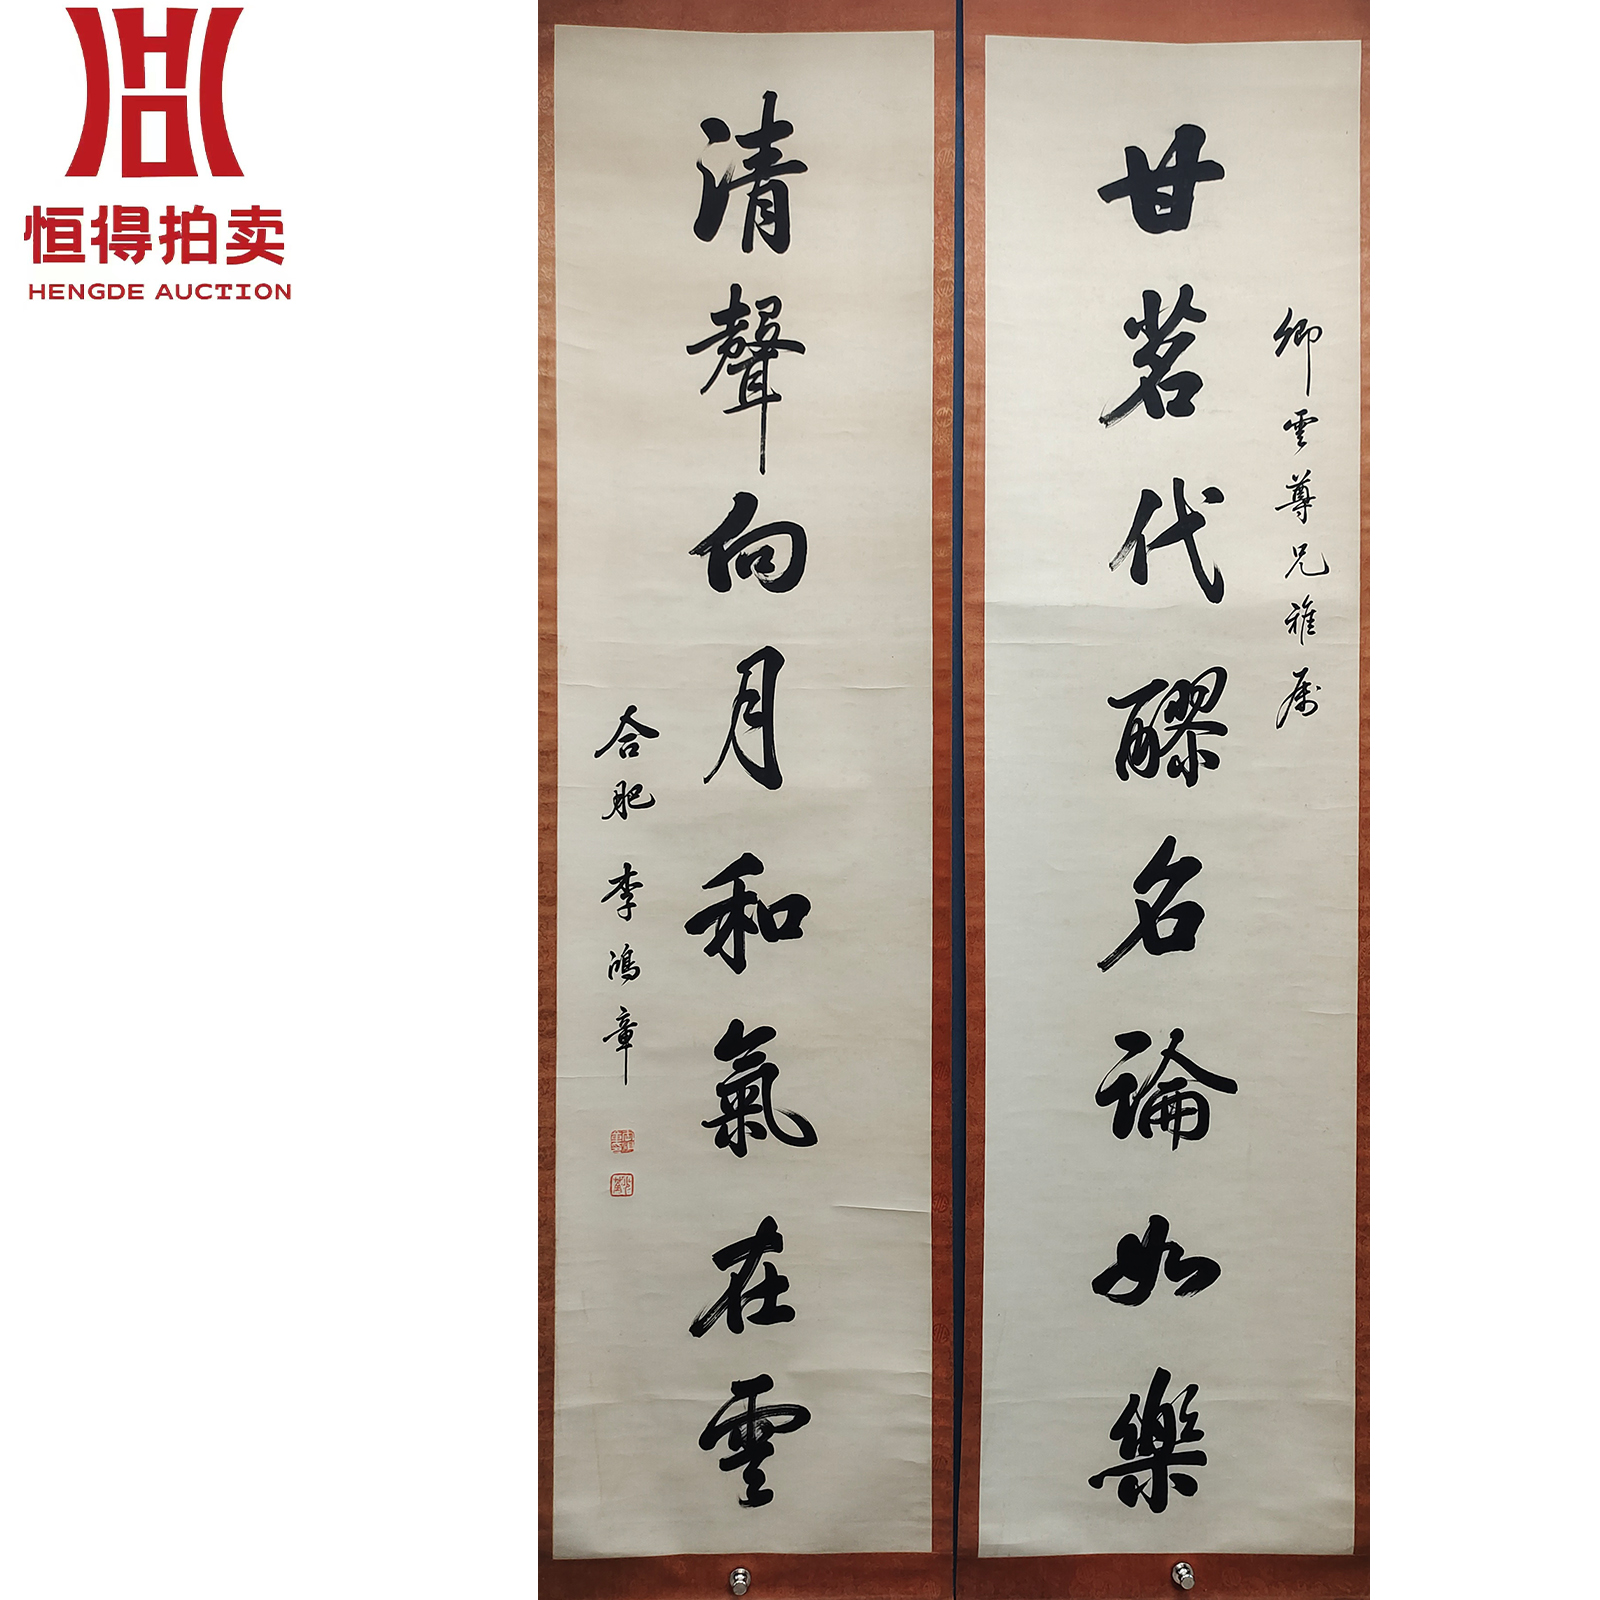 恒得拍卖
HENGDE AUCTION
卿雲尊兄雅属
甘茗代醪名論如樂
清聲向月和氣在雲
合肥李鴻章